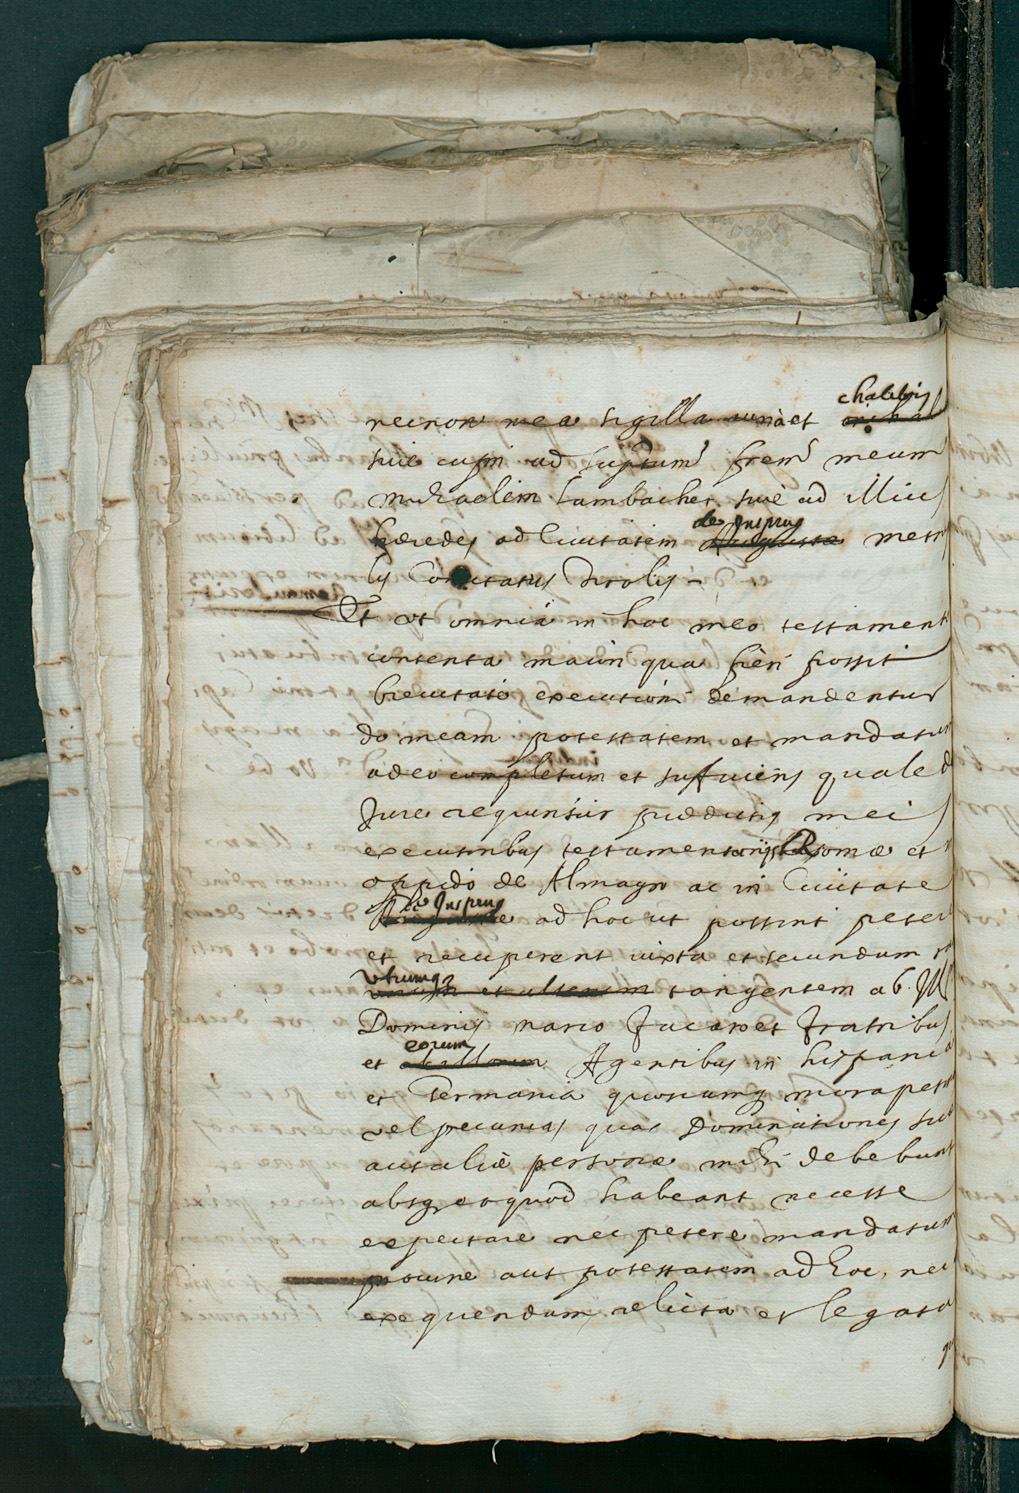 chalibis
necnon mea sigilla unà et
sive cupri ad supdum frem meum
Michaelem Lambacher sive ad illius
de Insprug
hæredes ad Civitatem Augustæ
lis Comitatus Tirolis
Et ut omnia in hoc meo testament
contenta maiori qua fieri possit
brevitate executioni demandentur
do meam potestatem et mandatum
adeo completum et sufficiens quale d
Jure requiritur prædictis meis
executoribus testamentarijs Romæ et
oppido de Almagro ac in Civitate
de Insprug
ad hoc ut possint petere
et recuperent iuxta et secundum
utrumq
et alterum tangentem ab Ill
Dominis Marco Fucaro et fratribus
eorum
et Agentibus in hispania
et Germania quoscumq
vel pecunias quas Dominationes suæ
aut aliæ personæ mihi debebunt
absq eo quod habeant necesse
expectare nec petere mandatum
aut potestatem ad hoc, nec
exequendum relicta et legata